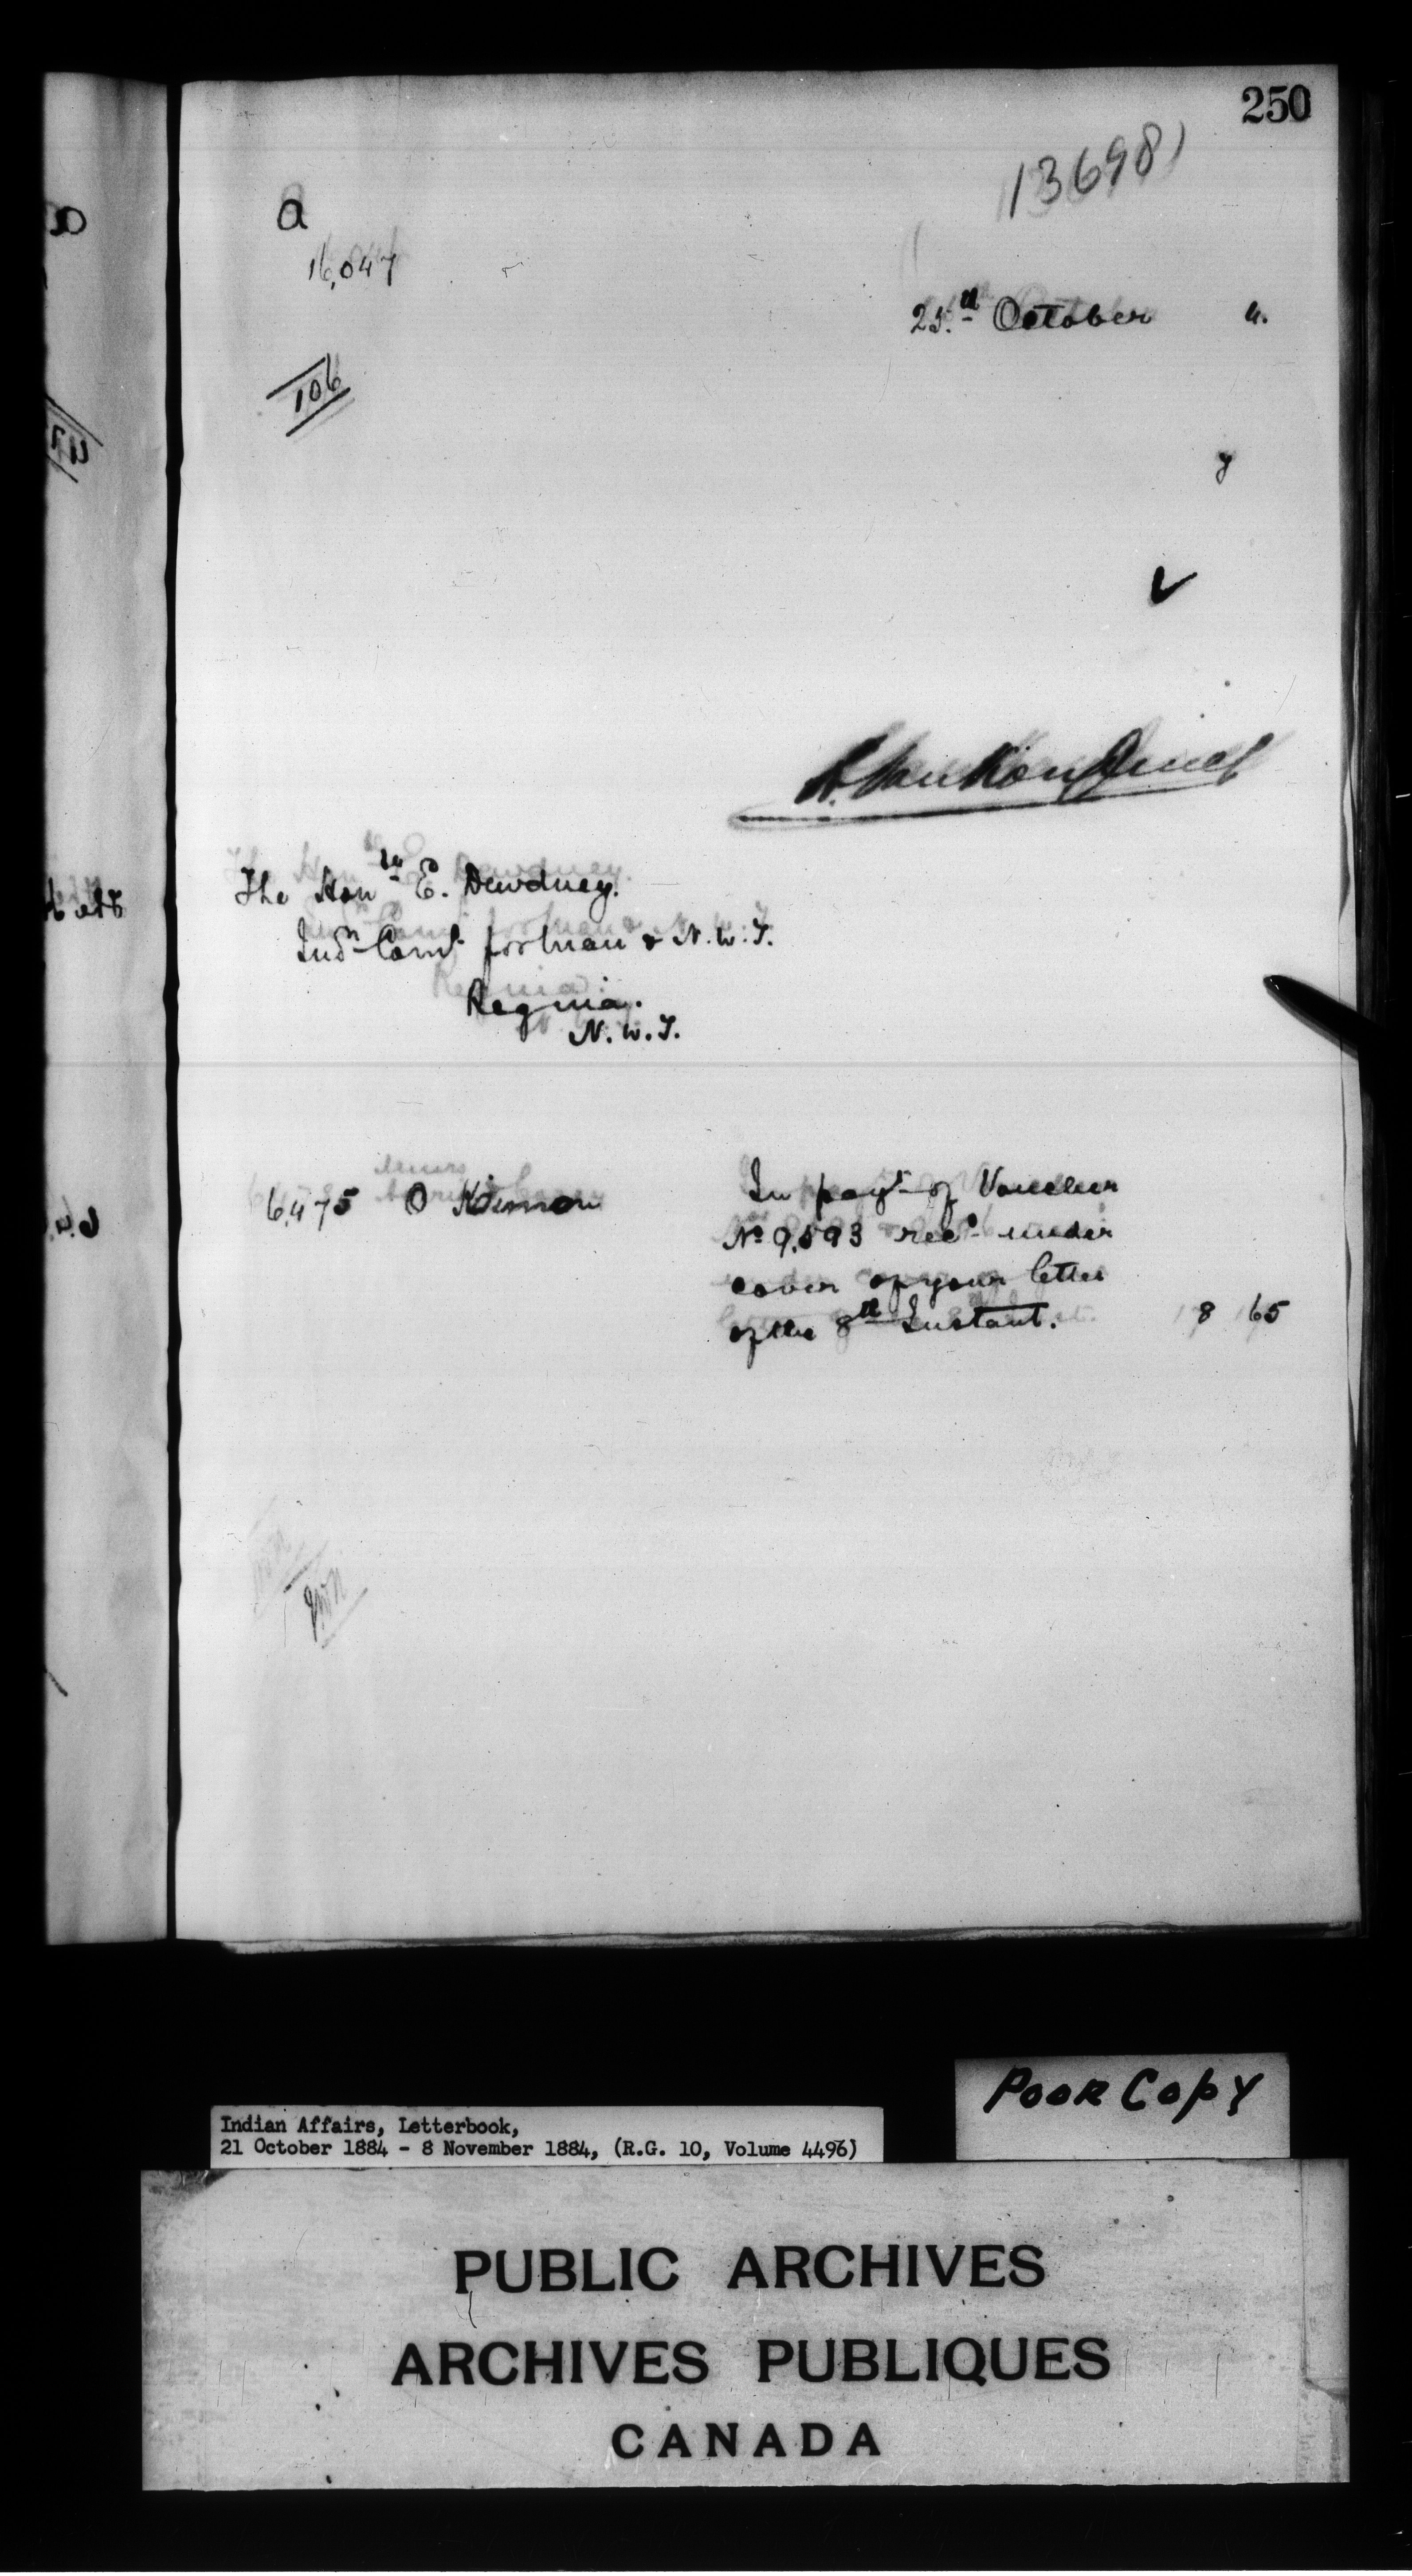 250
13698
a
16,047
25.th October 4.
106
y
L. VanKoughnet
The Honble E. Dewdney.
Indn Comr for Man & N.W.T.
Regina.
N.W.T.
6,475 O
In payt of Voucher
No 9,593 recd under
cover of your letter
of the 8th Instant. 8 65
Poor Copy
Indian Affairs, Letterbook,
21 October 1884 - 8 November 1884, (R.G. 10, Volume 4496)
PUBLIC ARCHIVES
ARCHIVES PUBLIQUES
CANADA